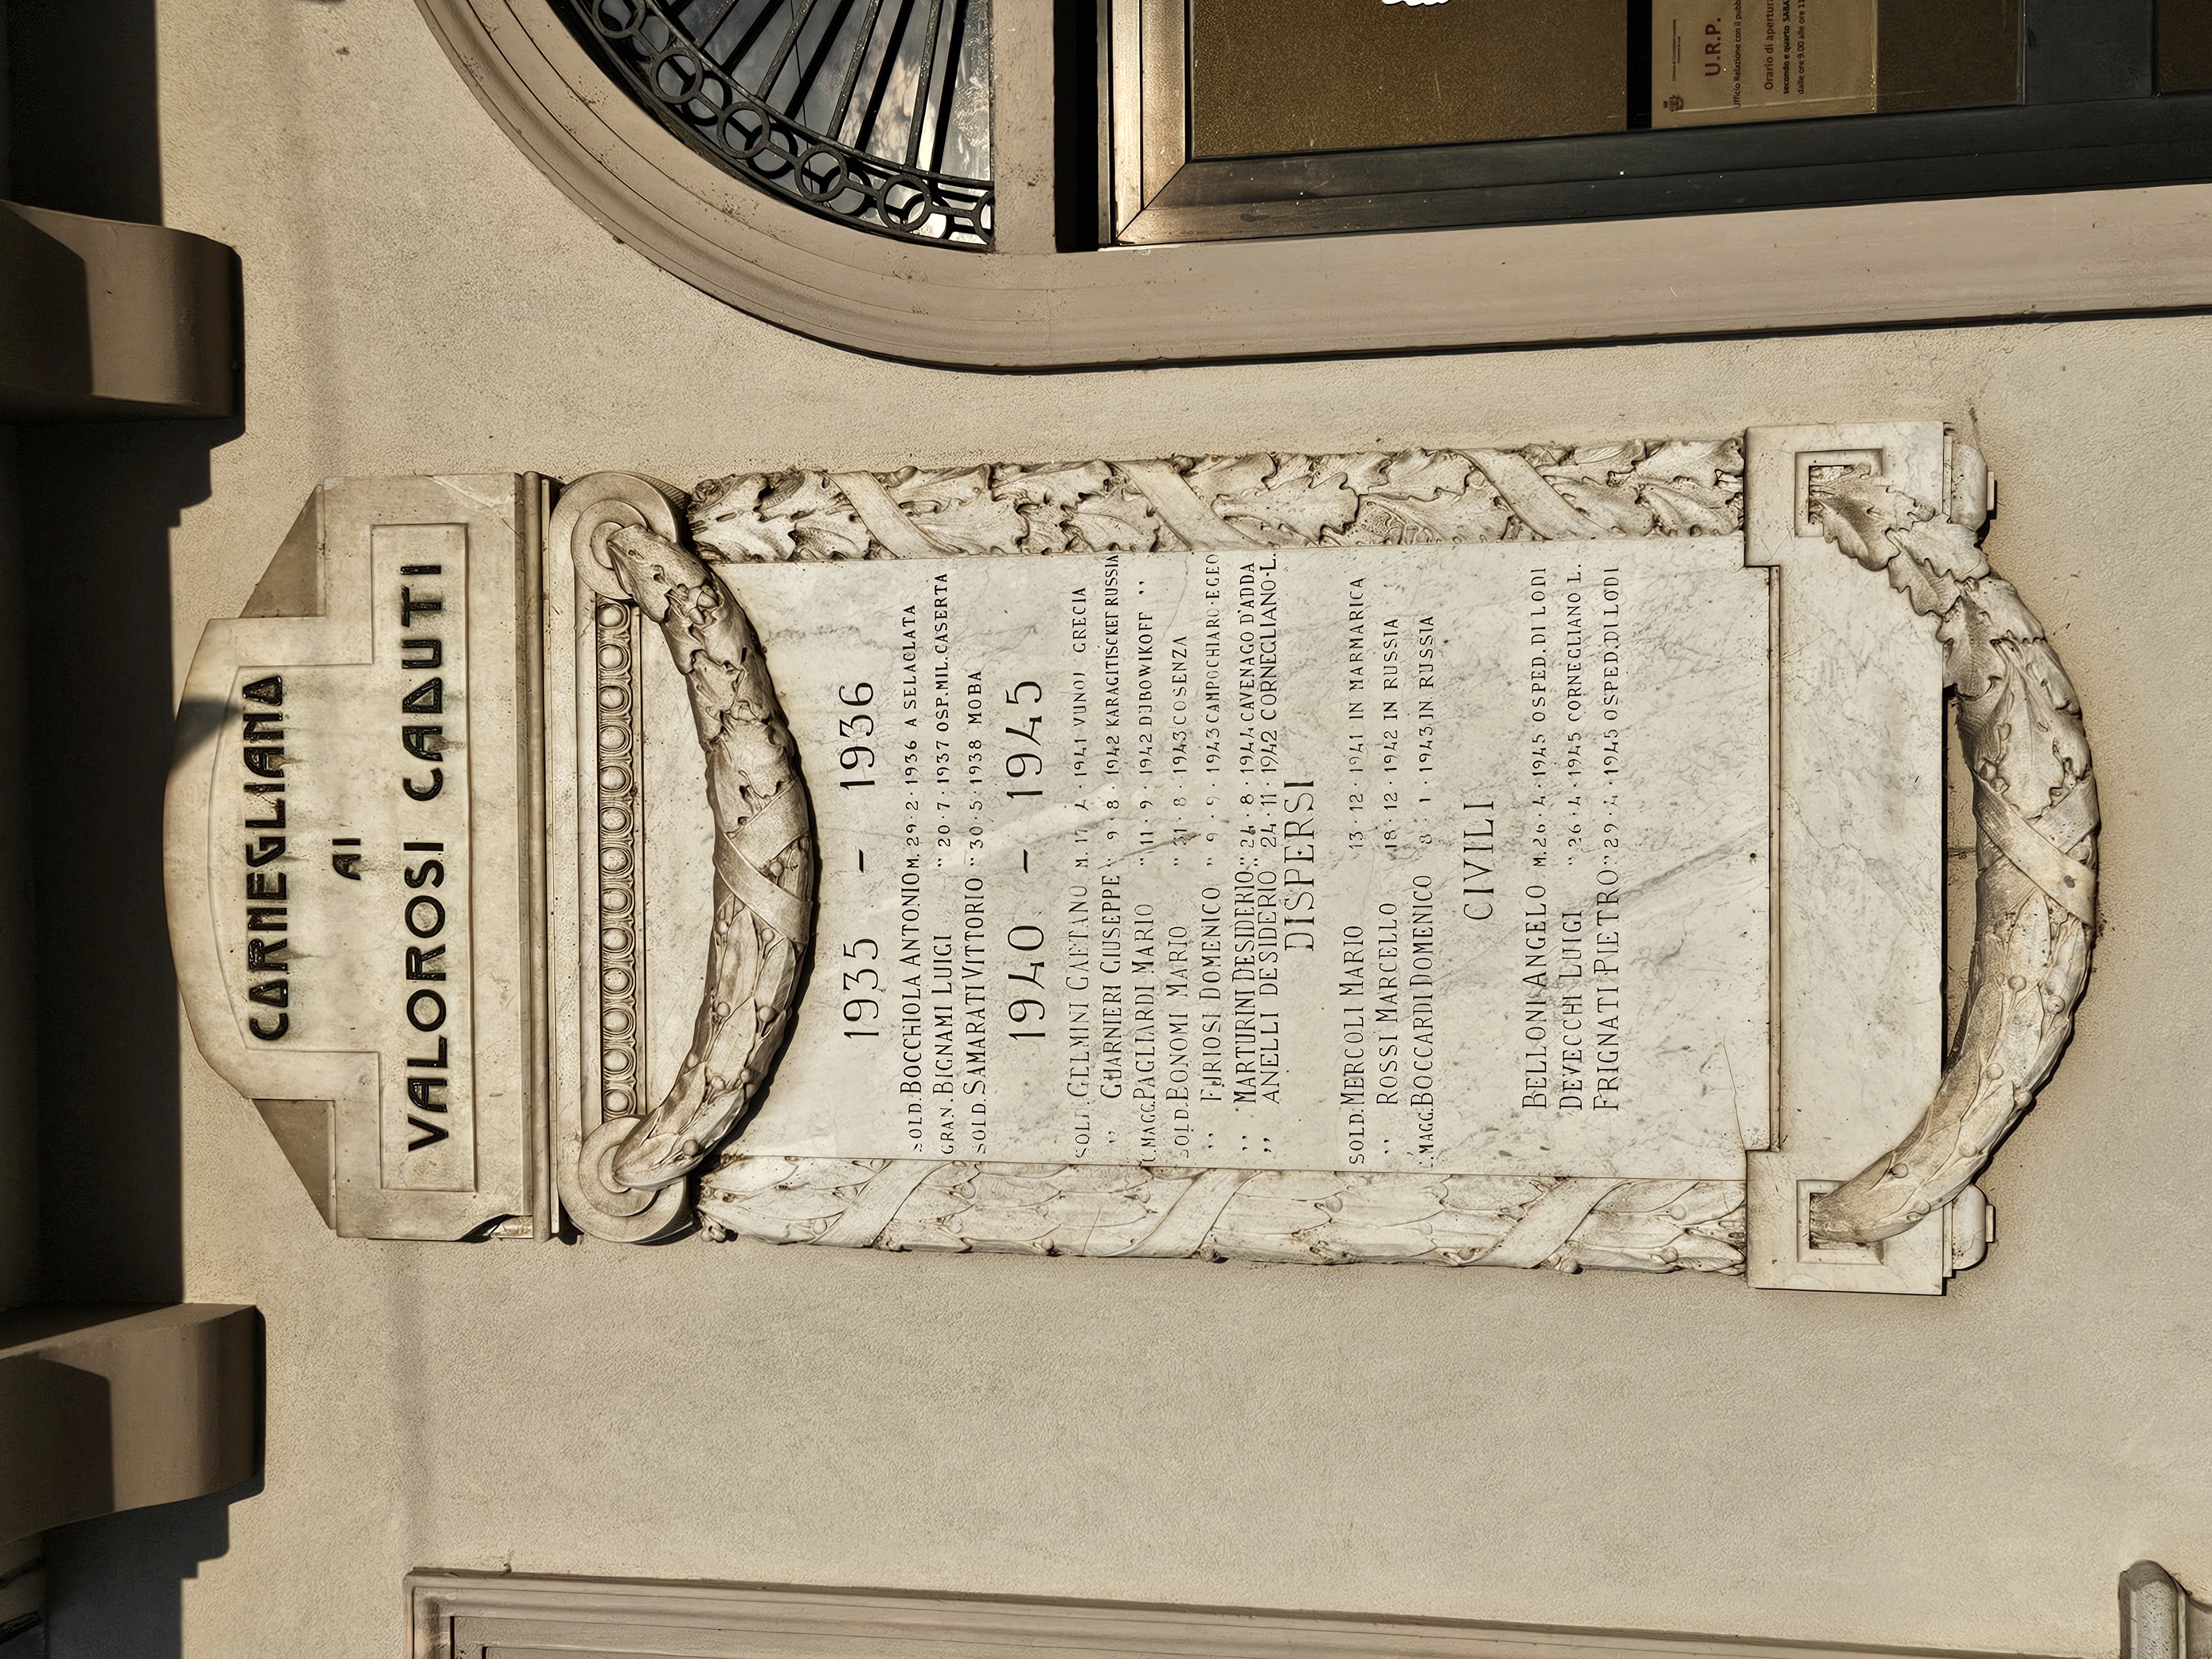 CORNEGLIANO
AI
VALOROSI CADUTI
1935 - 1936
SOLD. BOCCHIOLA ANTONIO M. 29·2·1936 A SELACLATA
GRAN. BIGNAMI LUIGI " 20·7·1937 OSP. MIL. CASERTA
SOLD. SAMARATI VITTORIO " 30·5·1938 MOBA
1940 - 1945
SOLD. GELMINI GAETANO M. 17·4·1941 VUNOI GRECIA
,, GUARNIERI GIUSEPPE " 9·8·1942 KARAGITISCKET RUSSIA
C.MAGG. PAGLIARDI MARIO " 11·9·1942 DUBOWIKOFF ,,
SOLD. BONOMI MARIO " 31·8·1943 COSENZA
,, FURIOSI DOMENICO " 9·9·1943 CAMPOCHIARO·EGEO
,, MARTURINI DESIDERIO " 24·8·1944 CAVENAGO D'ADDA
,, ANELLI DESIDERIO " 24·11·1942 CORNEGLIANO·L.
DISPERSI
SOLD. MERCOLI MARIO 13·12·1941 IN MARMARICA
,, ROSSI MARCELLO 18·12·1942 IN RUSSIA
C.MAGG. BOCCARDI DOMENICO 8·1·1943 IN RUSSIA
CIVILI
BELLONI ANGELO M. 26·4·1945 OSPED. DI LODI
DEVECCHI LUIGI " 26·4·1945 CORNEGLIANO L.
FRIGNATI PIETRO " 29·4·1945 OSPED. DI LODI
U.R.P.
Ufficio Relazione con il pubb
Orario di apertura
secondo e quarto SABA
dalle ore 9.00 alle ore 11